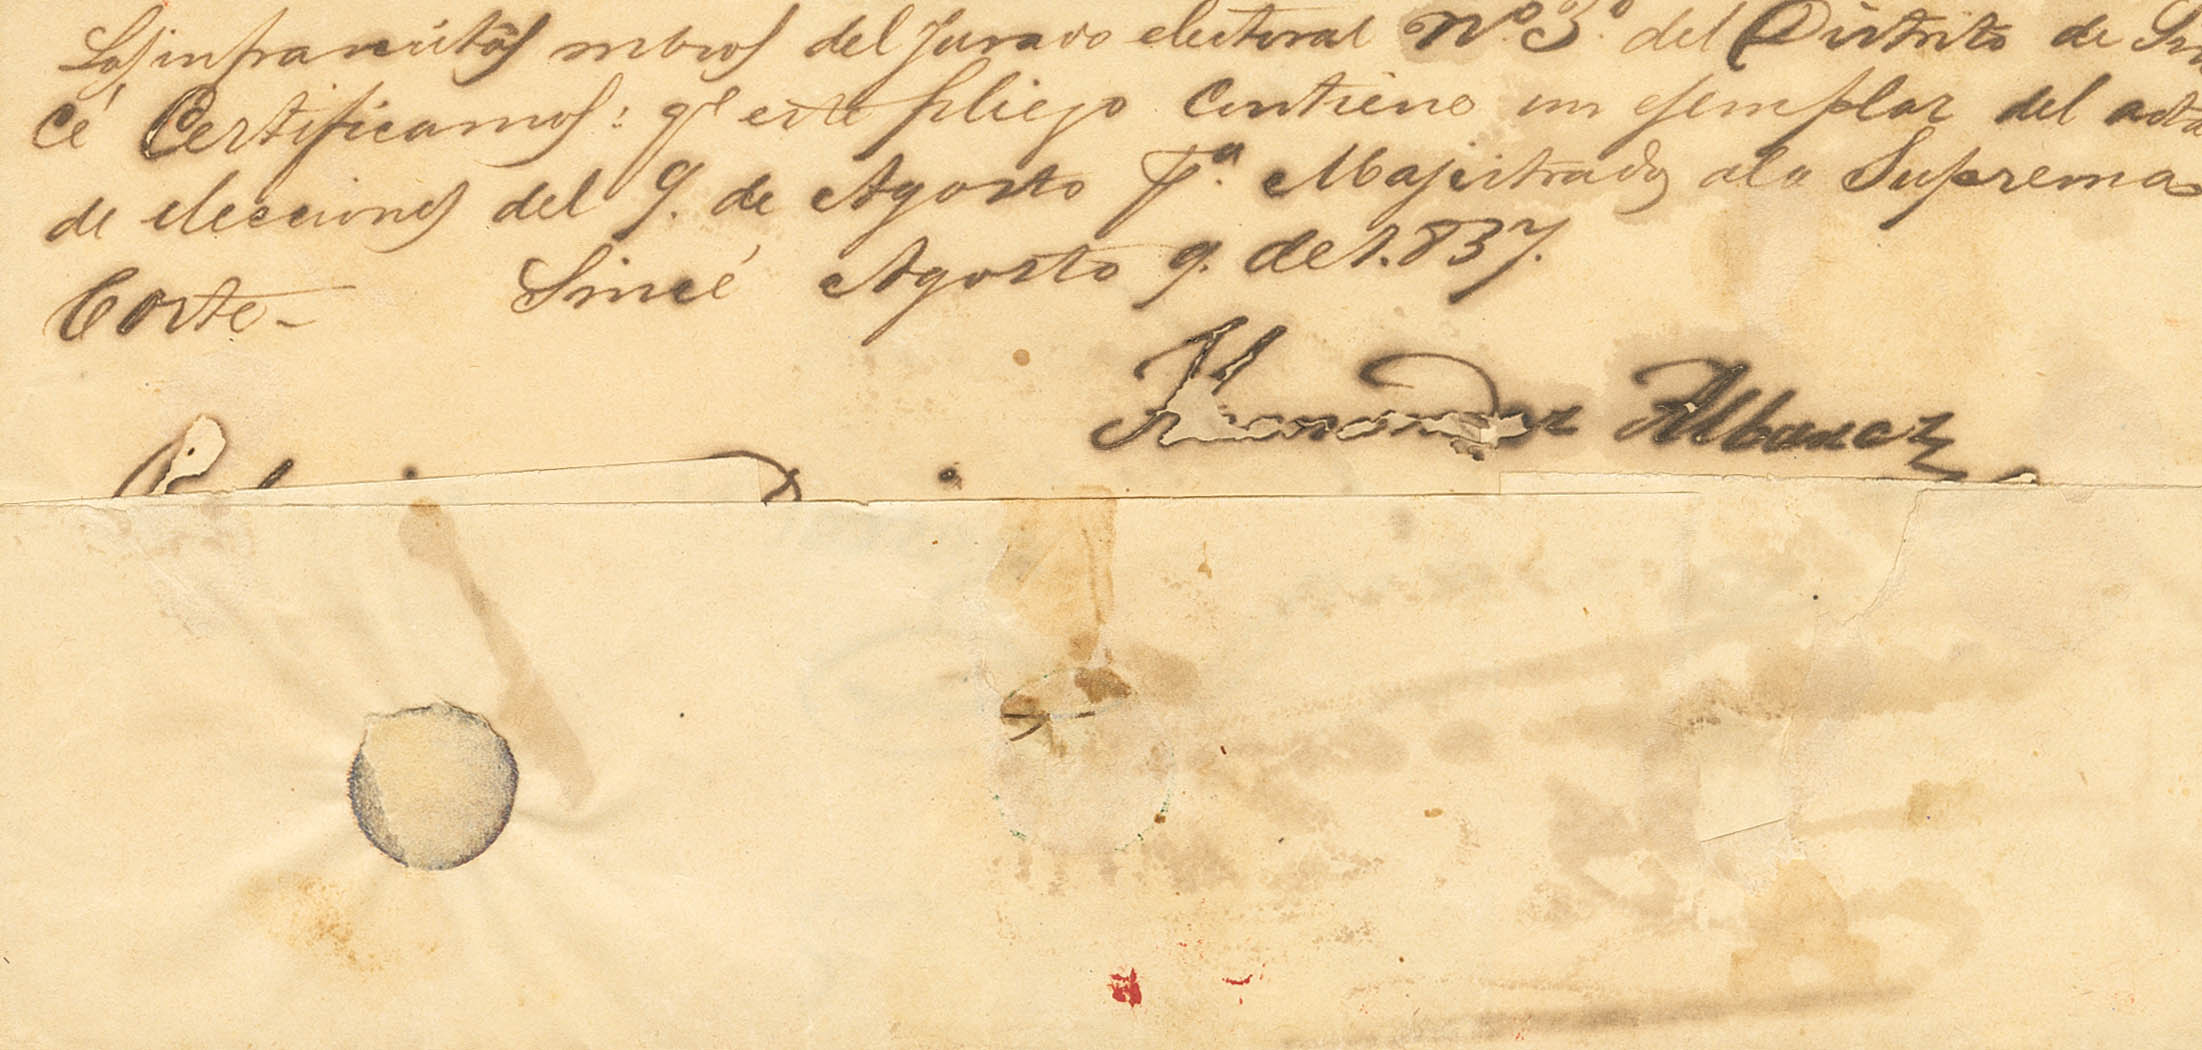 Los infraescritos mbros del Jurado electoral Nº 3º del Distrito de Sin
cé Certificamos: qe este pliego contiene un ejemplar del acta
de elecciones del 9. de Agosto pa. Majistrados ala Suprema
Corte- Sincé Agosto 9. de 1.837.
Albanez